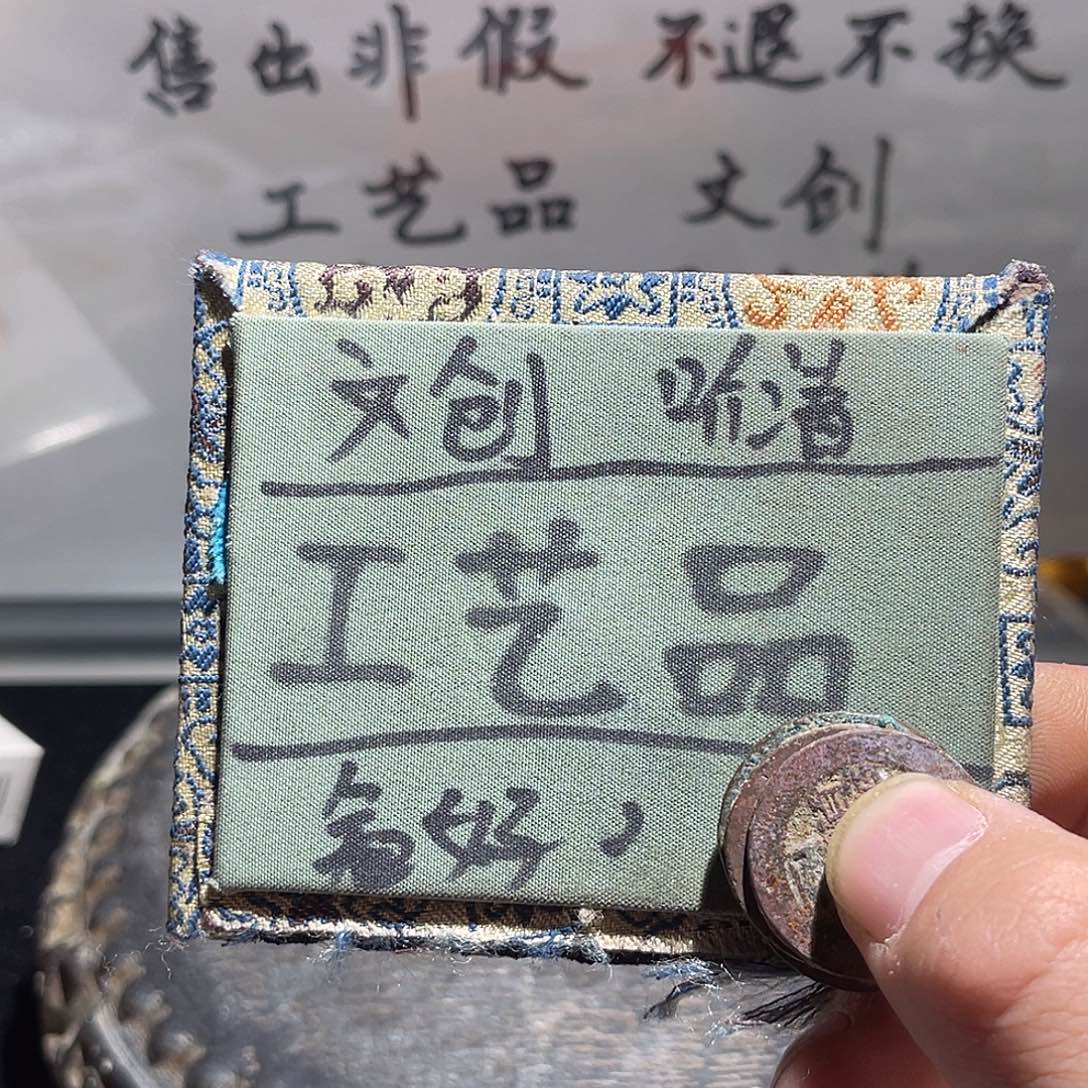 售出非假 不退不换
工艺品 文创
文创
工艺品